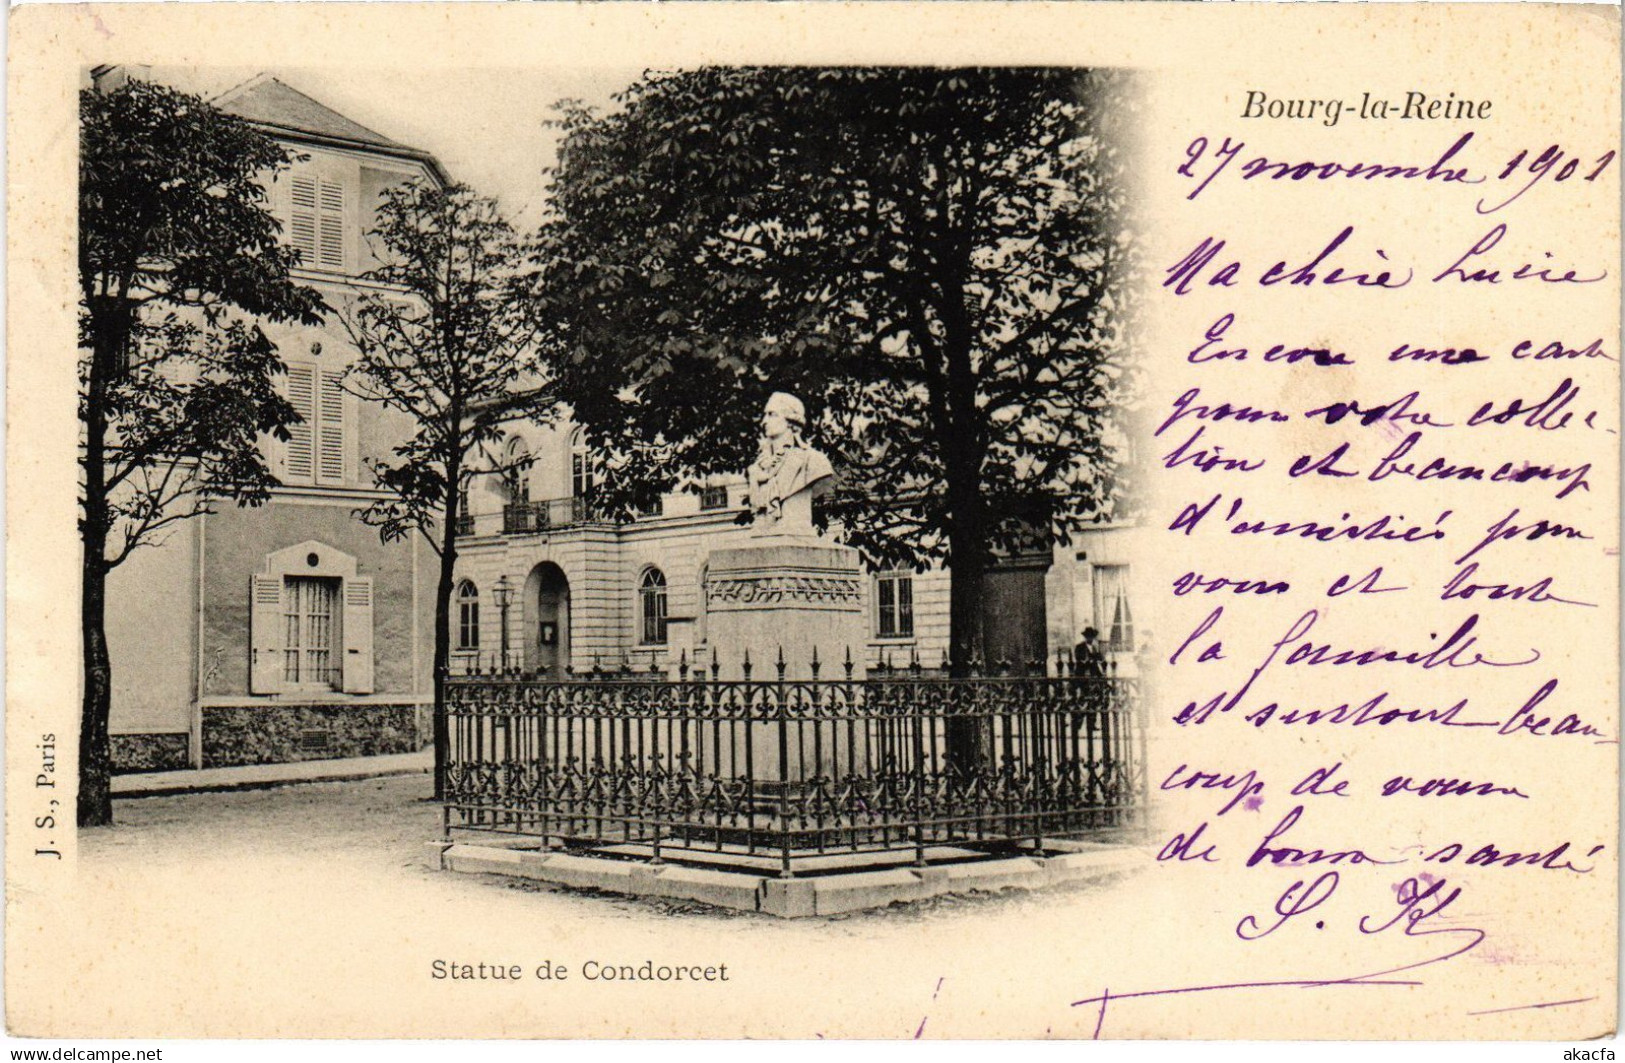 Bourg-la-Reine
27 novembre 1901
Ma chère Lucie
Encore une carte
pour votre collec-
tion et beaucoup
d'amitiés pour
vous et toute
la famille
et surtout beau-
coup de vœux
de bonne santé
S. K
J. S., Paris
Statue de Condorcet
delcampe.net
akacfa